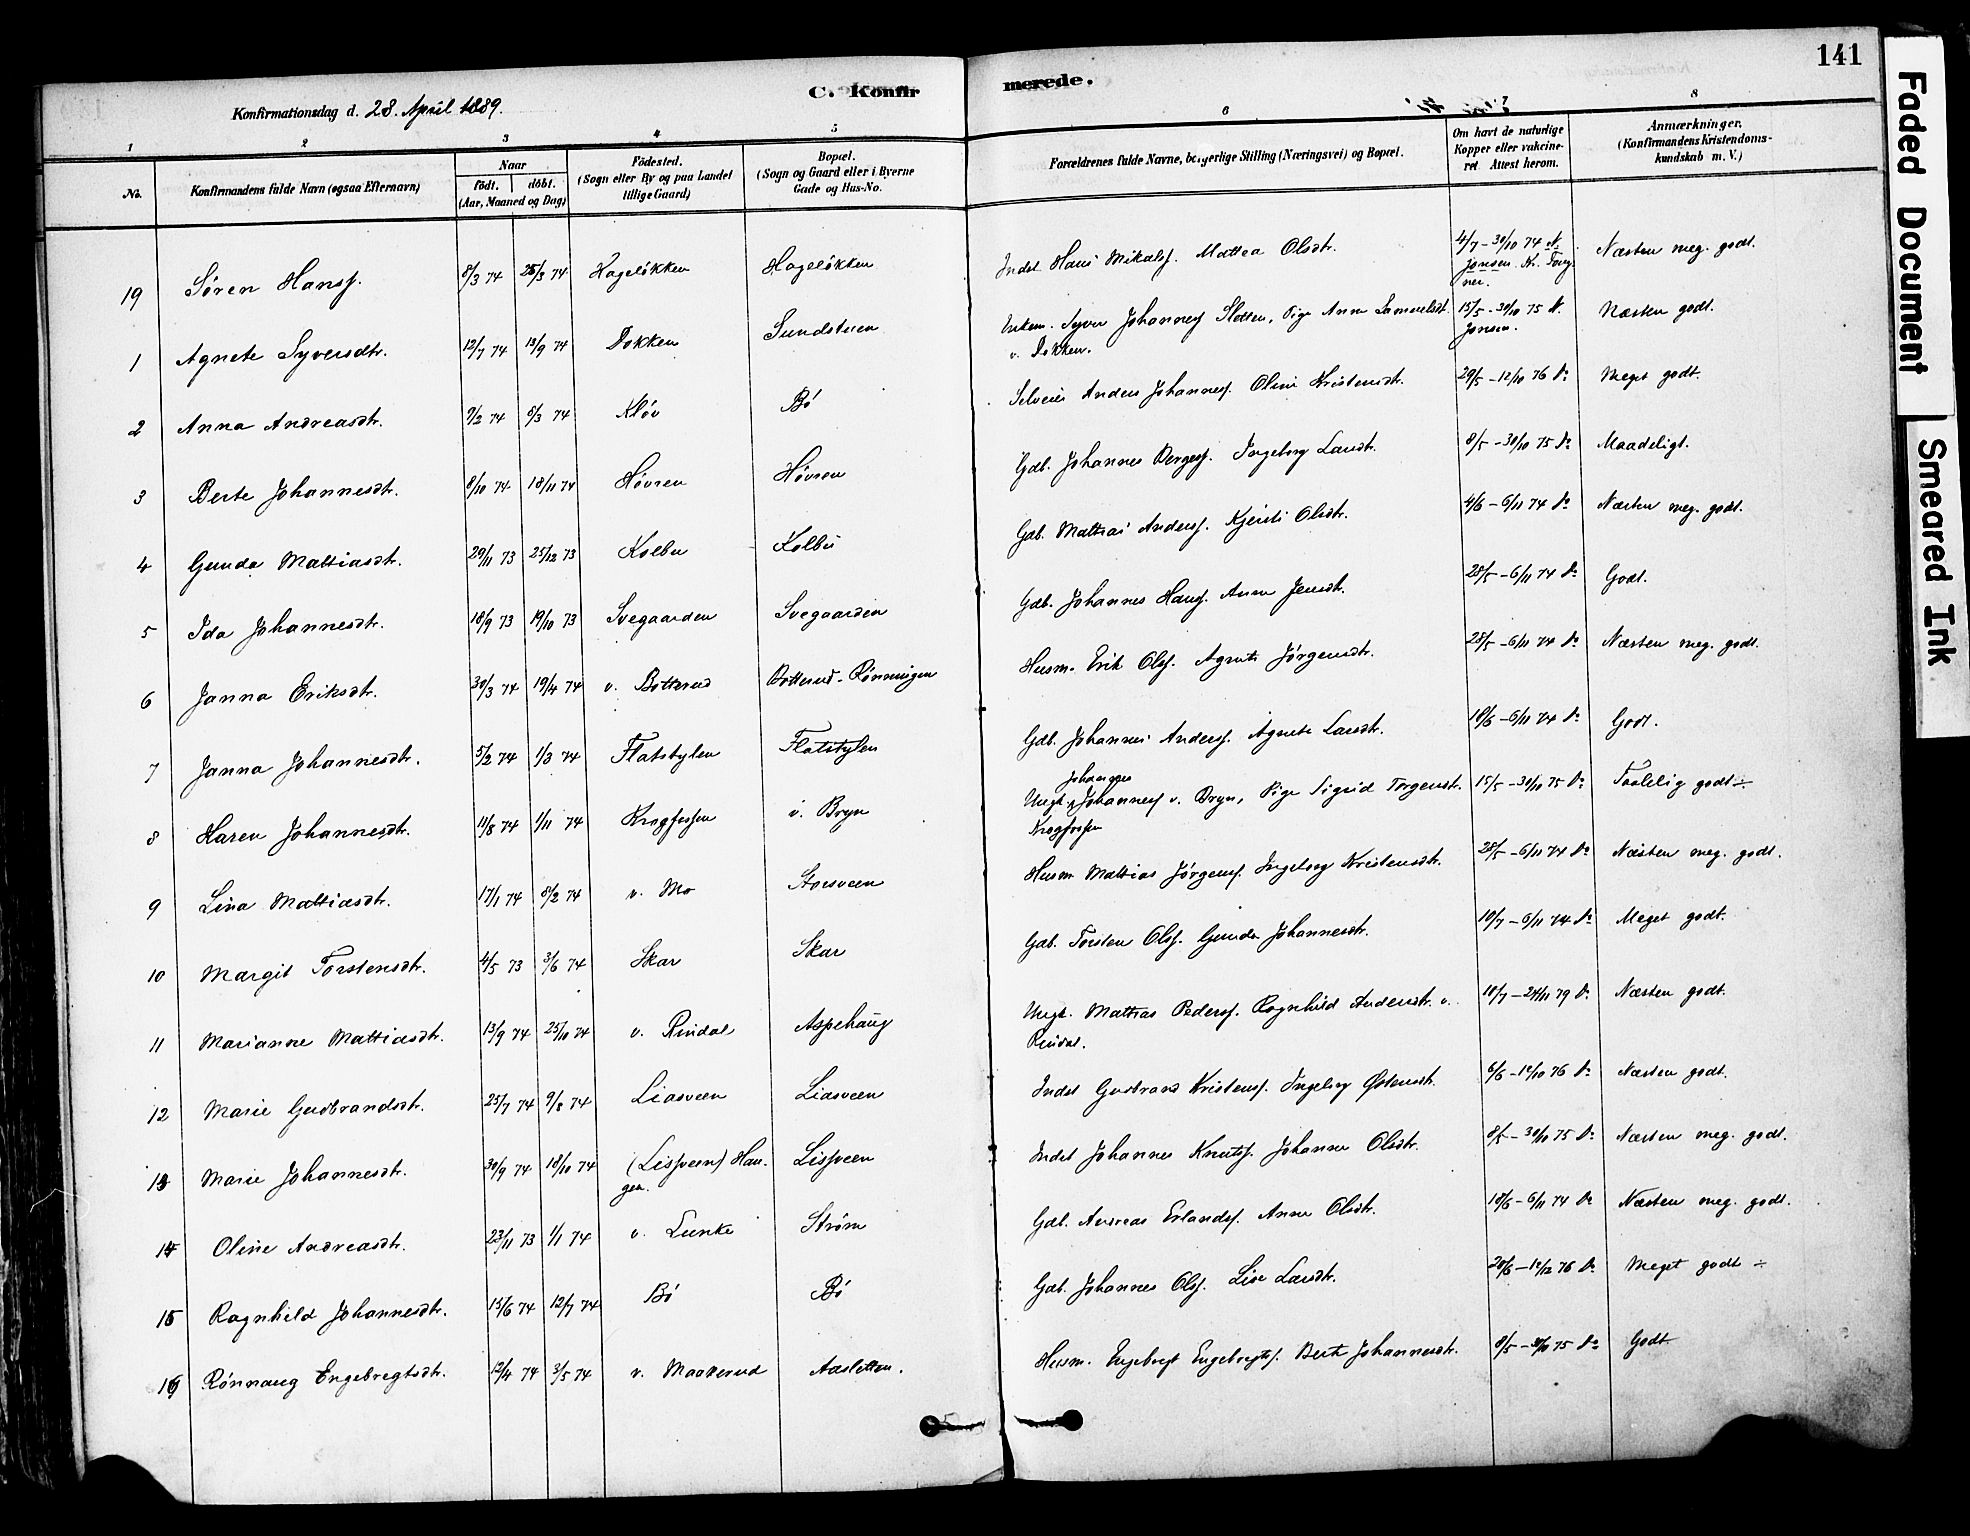 141
C. Konfirmerede.
Konfirmationsdag d. 28. April 1889.
1 2 3 4 5 6 7 8
No. Konfirmandens fulde Navn (ogsaa Efternavn) Naar født. døbt. (Aar, Maaned og Dag) Fødested. (Sogn eller By og paa Landet tillige Gaard) Bopæl. (Sogn og Gaard eller i Byerne Gade og Hus-No. Forældrenes fulde Navne, borgerlige Stilling (Næringsvei) og Bopæl. Om havt de naturlige Kopper eller vakcineret Attest herom. Anmærkninger. (Konfirmandens Kristendomskundskab m. V.)
19 Søren Hansf. 8/3 74 25/3 74 Hageløkken Hageløkken Indst Hans Mikalsf. Mattea Olsdtr. 4/7 – 30/10 74 N. Jonsen Næsten meg. godt.
1 Agnete Syversdtr. 12/7 74 13/9 74 Dokken Sundstuen Syver Johannesf Sletten, Pige Anne Samuelsdt. v. Dokken. 15/5 – 30/10 75 N. Jonsen. Næsten godt.
2 Anna Andreasdtr. 9/2 74 8/3 74 Kløv Bø Selveier Anders Johannesf. Oline Kristensdtr. 29/5 – 12/10 76 Do Meget godt.
3 Berte Johannesdtr. 8/10 74 18/11 74 Høvren Høvren Gdb. Johannes Bergesf. Ingeborg Larsdtr. 8/5 – 30/10 75 Do Maadeligt.
4 Gunda Mattiasdtr. 29/11 73 25/12 73 Kolbu Kolbu Gdb. Mattias Andersf. Kjersti Olsdtr. 4/6 – 6/11 74 Do Næsten meg. godt.
5 Ida Johannesdtr. 18/9 73 19/10 73 Svegaarden Svegaarden Gdb. Johannes Hansf. Anne Jensdtr. 28/5 – 6/11 74 Do Godt.
6 Janna Eriksdtr. 30/3 74 19/4 74 v. Botterud Botterud-Rønningen Husm. Erik Olsf. Agnete Jørgensdtr. 28/5 – 6/11 74 Do Næsten meg. godt.
7 Janna Johannesdtr. 5/2 74 1/3 74 Flatstylen Flatstylen Gdb. Johannes Andersf. Agnete Larsdtr. 18/6 – 6/11 74 Do Godt.
8 Karen Johannesdtr. 11/8 74 1/11 74 Krogfossen v. Bryn Ungk. Johannes Johannesf v. Bryn, Pige Sigrid Torgersdtr. Krogfossen 15/5 – 30/10 75 Do Taalelig godt ÷
9 Lina Mattiasdtr. 17/1 74 8/2 74 v. Mo Stosveen Husm Mattias Jørgensf. Ingeborg Kristensdtr. 28/5 – 6/11 74 Do Næsten meg. godt.
10 Margit Torstensdtr. 4/5 73 3/6 74 Skar Skar Gdb. Torsten Olsf. Gunda Johannesdtr. 10/7 – 6/11 74 Do Meget godt.
11 Marianne Mattiasdtr. 13/9 74 25/10 74 v. Rindal Aspehaug Ungk. Mattias Pedersf. Ragnhild Andersdtr. v. Rindal. 10/7 – 24/11 79 Do Næsten godt.
12 Marie Gudbrandsdtr. 25/7 74 9/8 74 Liasveen Liasveen Indst Gudbrand Kristensf. Ingeborg Østensdtr. 6/6 – 12/10 76 Do Næsten godt.
13 Marie Johannesdtr. 30/9 74 18/10 74 (Lisfveen) Haugen. Lisfveen Indst Johannes Knutsf. Johanne Olsdtr. 8/5 – 30/10 75 Do Næsten meg. godt.
14 Oline Andreasdtr. 23/11 73 1/1 74 v. Lunke Strøm Gdb. Andreas Erlandsf. Anne Olsdtr. 18/6 – 6/11 74 Do Næsten meg. godt.
15 Ragnhild Johannesdtr. 15/6 74 12/7 74 Bø Bø Gdb. Johannes Olsf. Lise Larsdtr. 20/6 – 12/12 76 Do Meget godt ÷
16 Rønnaug Engebregtsdtr. 12/4 74 3/5 74 v. Maaverud Aasletten. Husm. Engebregt Engebregtsf. Berte Johannesdtr. 8/5 – 30/10 75 Do Godt
Faded Document
Smeared Ink